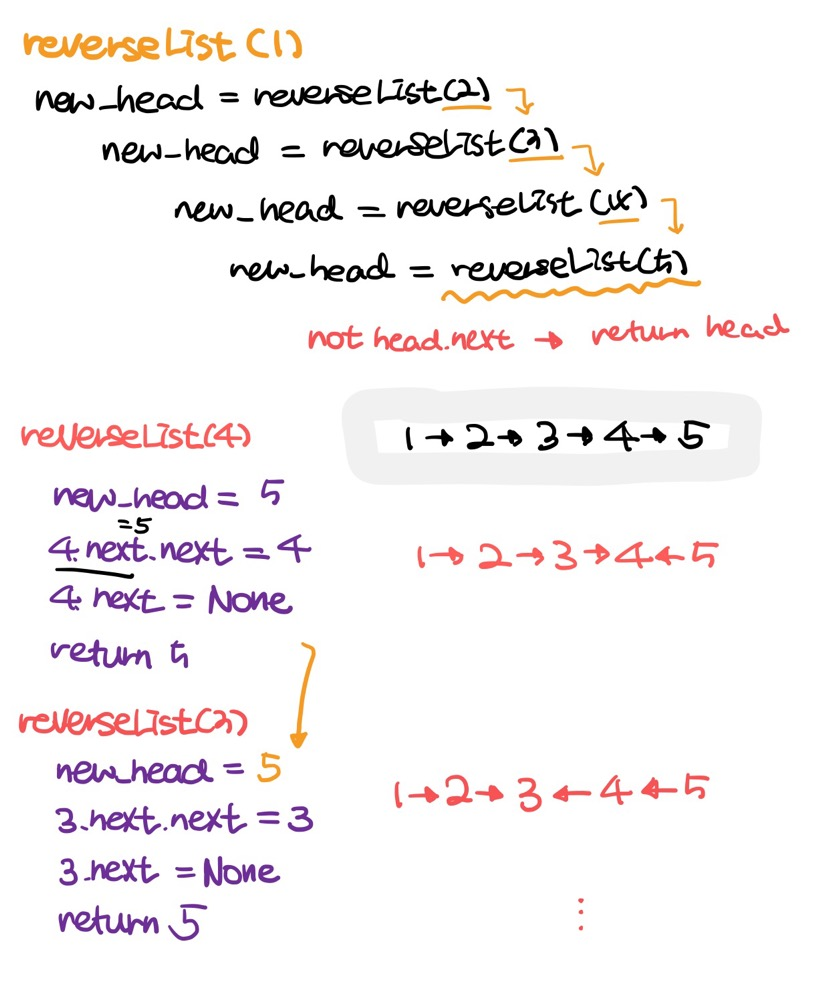 reverseList(1)
new_head = reverseList(2)
new_head = reverseList(3)
new_head = reverseList(4)
new_head = reverseList(5)
not head.next → return head
1 → 2 → 3 → 4 → 5
reverseList(4)
new_head = 5
=5
4.next.next = 4
1 → 2 → 3 → 4 ← 5
4.next = None
return 5
reverseList(3)
new_head = 5
1 → 2 → 3 ← 4 ← 5
3.next.next = 3
3.next = None
return 5
⋮